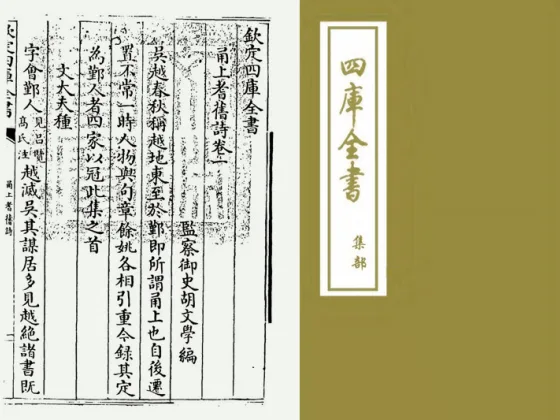 欽定四庫全書
甬上耆舊詩卷一
監察御史胡文學編
吳越春秋稱越地東至於鄞即所謂甬上也自後遷
置不常一時人物與句章餘姚各相引重今録其定
為鄞人者四家以冠此集之首
文大夫種
字會鄞人見吕覽高氏注越滅吳其謀居多見越絶諸書既
欽定四庫全書
甬上耆舊詩
一
四庫全書
集部